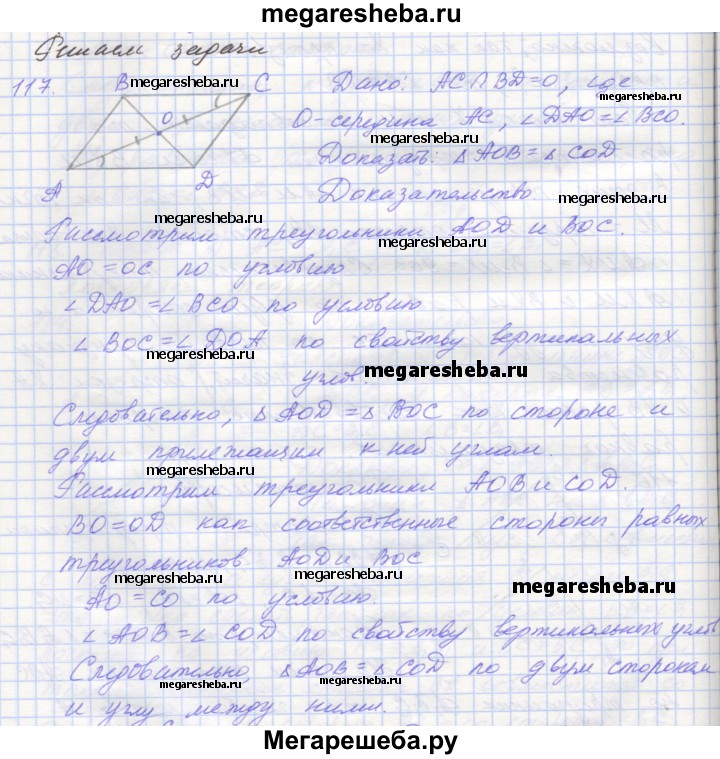 megaresheba.ru
Решаем задачи
117. B megaresheba.ru C Дано: AC∩BD=O, где
megaresheba.ru
O O-середина AC, ∠DAO=∠BCO.
megaresheba.ru
Доказать: ΔAOB=ΔCOD
A D Доказательство. megaresheba.ru
megaresheba.ru
Рассмотрим треугольники AOD и BOC.
megaresheba.ru
AO=OC по условию
∠DAO=∠BCO по условию
∠BOC=∠DOA по свойству вертикальных
megaresheba.ru
углов. megaresheba.ru
Следовательно, ΔAOD=ΔBOC по стороне и
двум прилежащим к ней углам.
megaresheba.ru
Рассмотрим треугольники AOB и COD.
BO=OD как соответственные стороны равных
треугольников AOD и BOC
megaresheba.ru megaresheba.ru
megaresheba.ru
AO=CO по условию.
∠AOB=∠COD по свойству вертикальных углов
Следовательно, ΔAOB=ΔCOD по двум сторонам
megaresheba.ru megaresheba.ru megaresheba.ru
и углу между ними.
Мегарешеба.ру